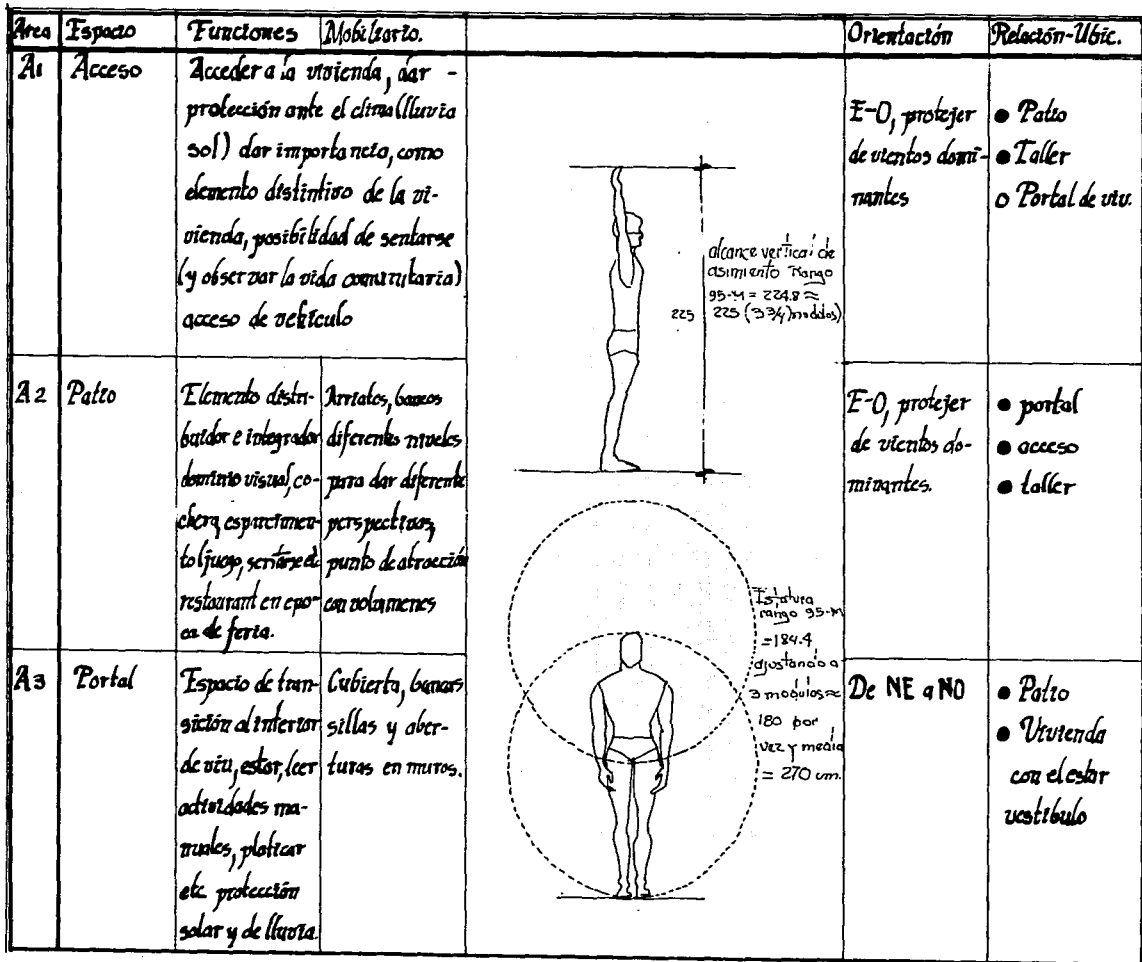 Area Espacio Funciones Mobiliario. Orientación Relación-Ubic.
A1 Acceso
Acceder a la vivienda, dar -
protección ante el clima (lluvia
sol) dar importancia, como
elemento distintivo de la vi-
vienda, posibilidad de sentarse
(y observar la vida comunitaria)
acceso de vehículo
alcance vertical de
asimiento rango
95-M = 224.8 ≈
225 (3 3/4) modulos)
225
E-O, protejer
de vientos domi-
nantes
● Patio
● Taller
o Portal de viv.
A2 Patio
Elemento distri-
buidor e integrador
dominio visual, co-
chera, esparcimien-
to (juego, sentarse
restaurant en epo-
ca de feria.
Arriates, bancos
diferentes niveles
para dar diferente
perspectivas,
punto de atracción
con volumenes
E-O, protejer
de vientos do-
minantes.
● portal
● acceso
● taller
Estatura
rango 95-M
=184.4
ajustando a
3 modulos ≈
180 por
vez y media
= 270 cm.
A3 Portal
Espacio de tran-
sición al interior
de viv, estar, leer
actividades ma-
nuales, platicar
etc protección
solar y de lluvia.
Cubierta, bancas
sillas y aber-
turas en muros.
De NE a NO
● Patio
● Vivienda
con el estar
vestíbulo